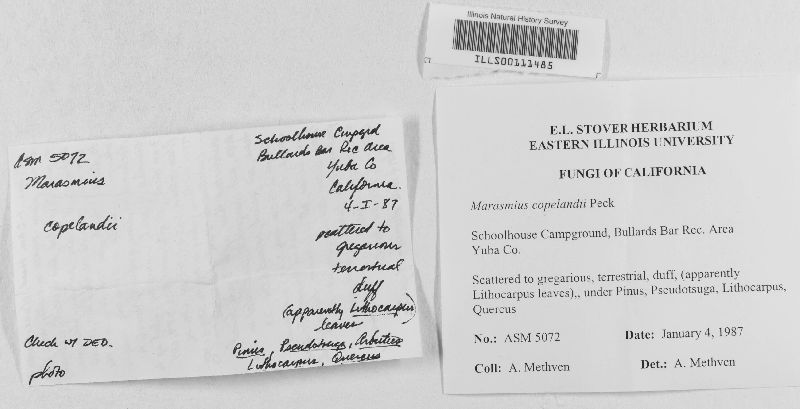 Illinois Natural History Survey
ILLS00111485
ASM 5072
Marasmius
copelandii
Check w/ DED.
photo
Schoolhouse Cmpgrd
Bullards Bar Rec Area
Yuba Co
California.
4-I-87
scattered to
gregarious
terrestrial
duff
(apparently Lithocarpus)
leaves
Pinus, Pseudotsuga, Arbutus
Lithocarpus, Quercus
E.L. STOVER HERBARIUM
EASTERN ILLINOIS UNIVERSITY
FUNGI OF CALIFORNIA
Marasmius copelandii Peck
Schoolhouse Campground, Bullards Bar Rec. Area
Yuba Co.
Scattered to gregarious, terrestrial, duff, (apparently
Lithocarpus leaves),, under Pinus, Pseudotsuga, Lithocarpus,
Quercus
No.: ASM 5072 Date: January 4, 1987
Coll: A. Methven Det.: A. Methven